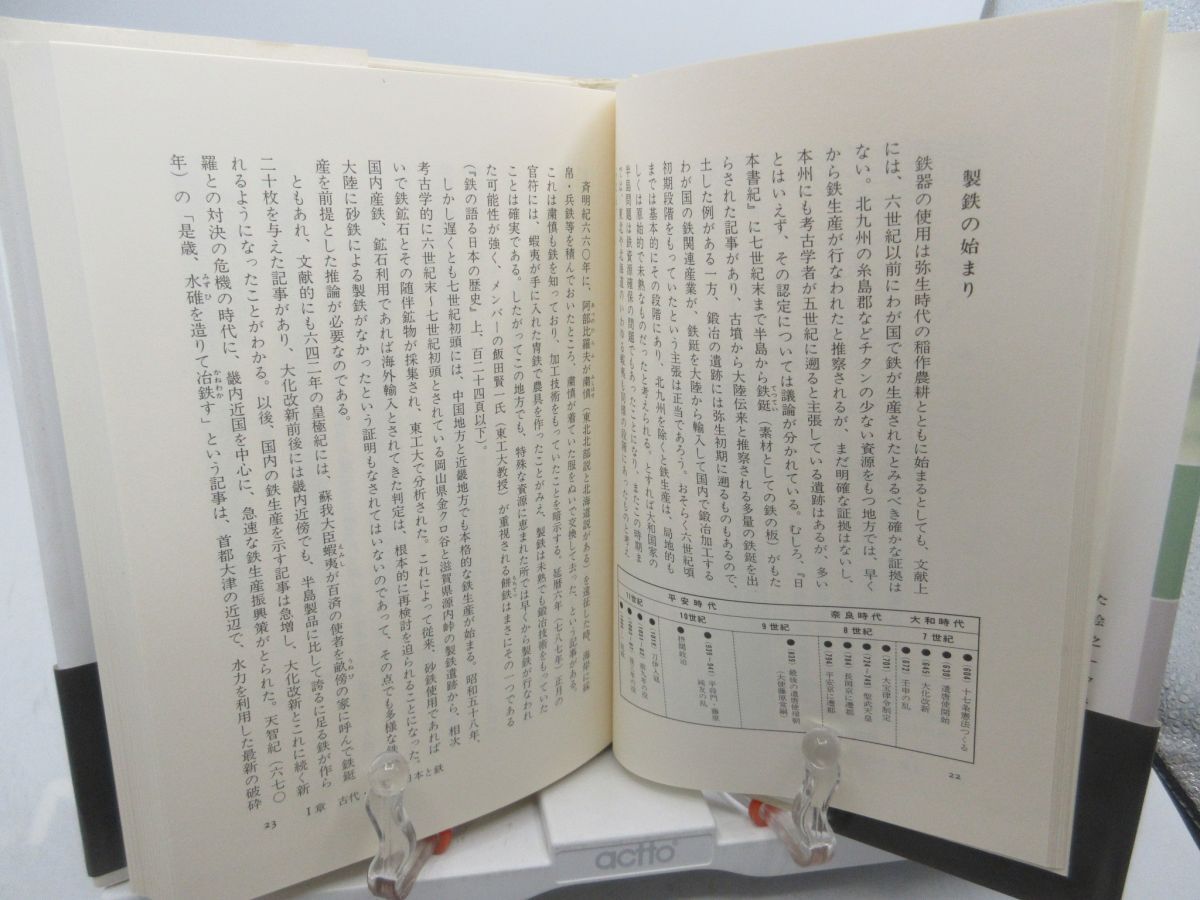 製鉄の始まり
鉄器の使用は弥生時代の稲作農耕とともに始まるとしても、文献上
には、六世紀以前にわが国で鉄が生産されたとみるべき確かな証拠は
ない。北九州の糸島郡などチタンの少ない資源をもつ地方では、早く
から鉄生産が行なわれたと推察されるが、まだ明確な証拠はないし、
本州にも考古学者が五世紀に遡ると主張している遺跡はあるが、多い
とはいえず、その認定については議論が分かれている。むしろ、『日
本書紀』に七世紀末まで半島から鉄鋌（素材としての鉄の板）がもた
らされた記事があり、古墳から大陸伝来と推察される多量の鉄鋌を出
土した例がある一方、鍛冶の遺跡には弥生初期に遡るものもあるので、
わが国の鉄関連産業が、鉄鋌を大陸から輸入して国内で鍛冶加工する
初期段階をもっていたという主張は正当であろう。おそらく六世紀頃
までは基本的にその段階にあり、北九州を除くと鉄生産は、局地的も
しくは原始的で未熟なものだったと考えられる。とすれば大和国家の
半島問題は鉄資源確保の問題でもあったことになり、またこの時期ま
大和時代
奈良時代
平安時代
7世紀
8世紀
9世紀
10世紀
11世紀
●(604) 十七条憲法つくる
●(630) 遣唐使開始
●(645) 大化改新
●(672) 壬申の乱
●(701) 大宝律令制定
●(724-749) 聖武天皇
●(784) 長岡京に遷都
●(794) 平安京に遷都
●(838) 最後の遣唐使理朝
（大使藤原常嗣）
●(939-941) 平将門・藤原
純友の乱
●摂関政治
●(1019) 刀伊入寇
22
斉明紀六六〇年に、阿部比羅夫が粛慎（東北北部説と北海道説がある）を遠征した時、海岸に綵
帛・兵鉄等を積んでおいたところ、粛慎が着ていた服をぬいで交換して去った、という記事がある。
これは粛慎も鉄を知っており、加工技術をもっていたことを暗示する。延暦六年（七八七年）正月の
官符には、蝦夷が手に入れた冑鉄で農具を作ったことがみえ、製鉄は未熟でも鍛冶技術をもっていた
ことは確実である。したがってこの地方でも、特殊な資源に恵まれた所では早くから製鉄が行なわれ
た可能性が強く、メンバーの飯田賢一氏（東工大教授）が重視される餅鉄はまさにその一つである
（『鉄の語る日本の歴史』上、百二十四頁以下）。
しかし遅くとも七世紀初頭には、中国地方と近畿地方でも本格的な鉄生産が始まる。昭和五十八年、
考古学的に六世紀末〜七世紀初頭とされている岡山県金クロ谷と滋賀県源内峠の製鉄遺跡から、相次
いで鉄鉱石とその随伴鉱物が採集され、東工大で分析された。これによって従来、砂鉄使用であれば
国内産鉄、鉱石利用であれば海外輸入とされてきた判定は、根本的に再検討を迫られることになった。
大陸に砂鉄による製鉄がなかったという証明もなされてはいないのであって、その点でも多様な鉄
産を前提とした推論が必要なのである。
ともあれ、文献的にも六四二年の皇極紀には、蘇我大臣蝦夷が百済の使者を畝傍の家に呼んで鉄鋌
二十枚を与えた記事があり、大化改新前後には畿内近傍でも、半島製品に比して誇るに足る鉄が作ら
れるようになったことがわかる。以後、国内の鉄生産を示す記事は急増し、大化改新とこれに続く新
羅との対決の危機の時代に、畿内近国を中心に、急速な鉄生産振興策がとられた。天智紀（六七〇
年）の「是歳、水碓を造りて冶鉄す」という記事は、首都大津の近辺で、水力を利用した最新の破砕
Ⅰ章 古代
日本と鉄
23
actto